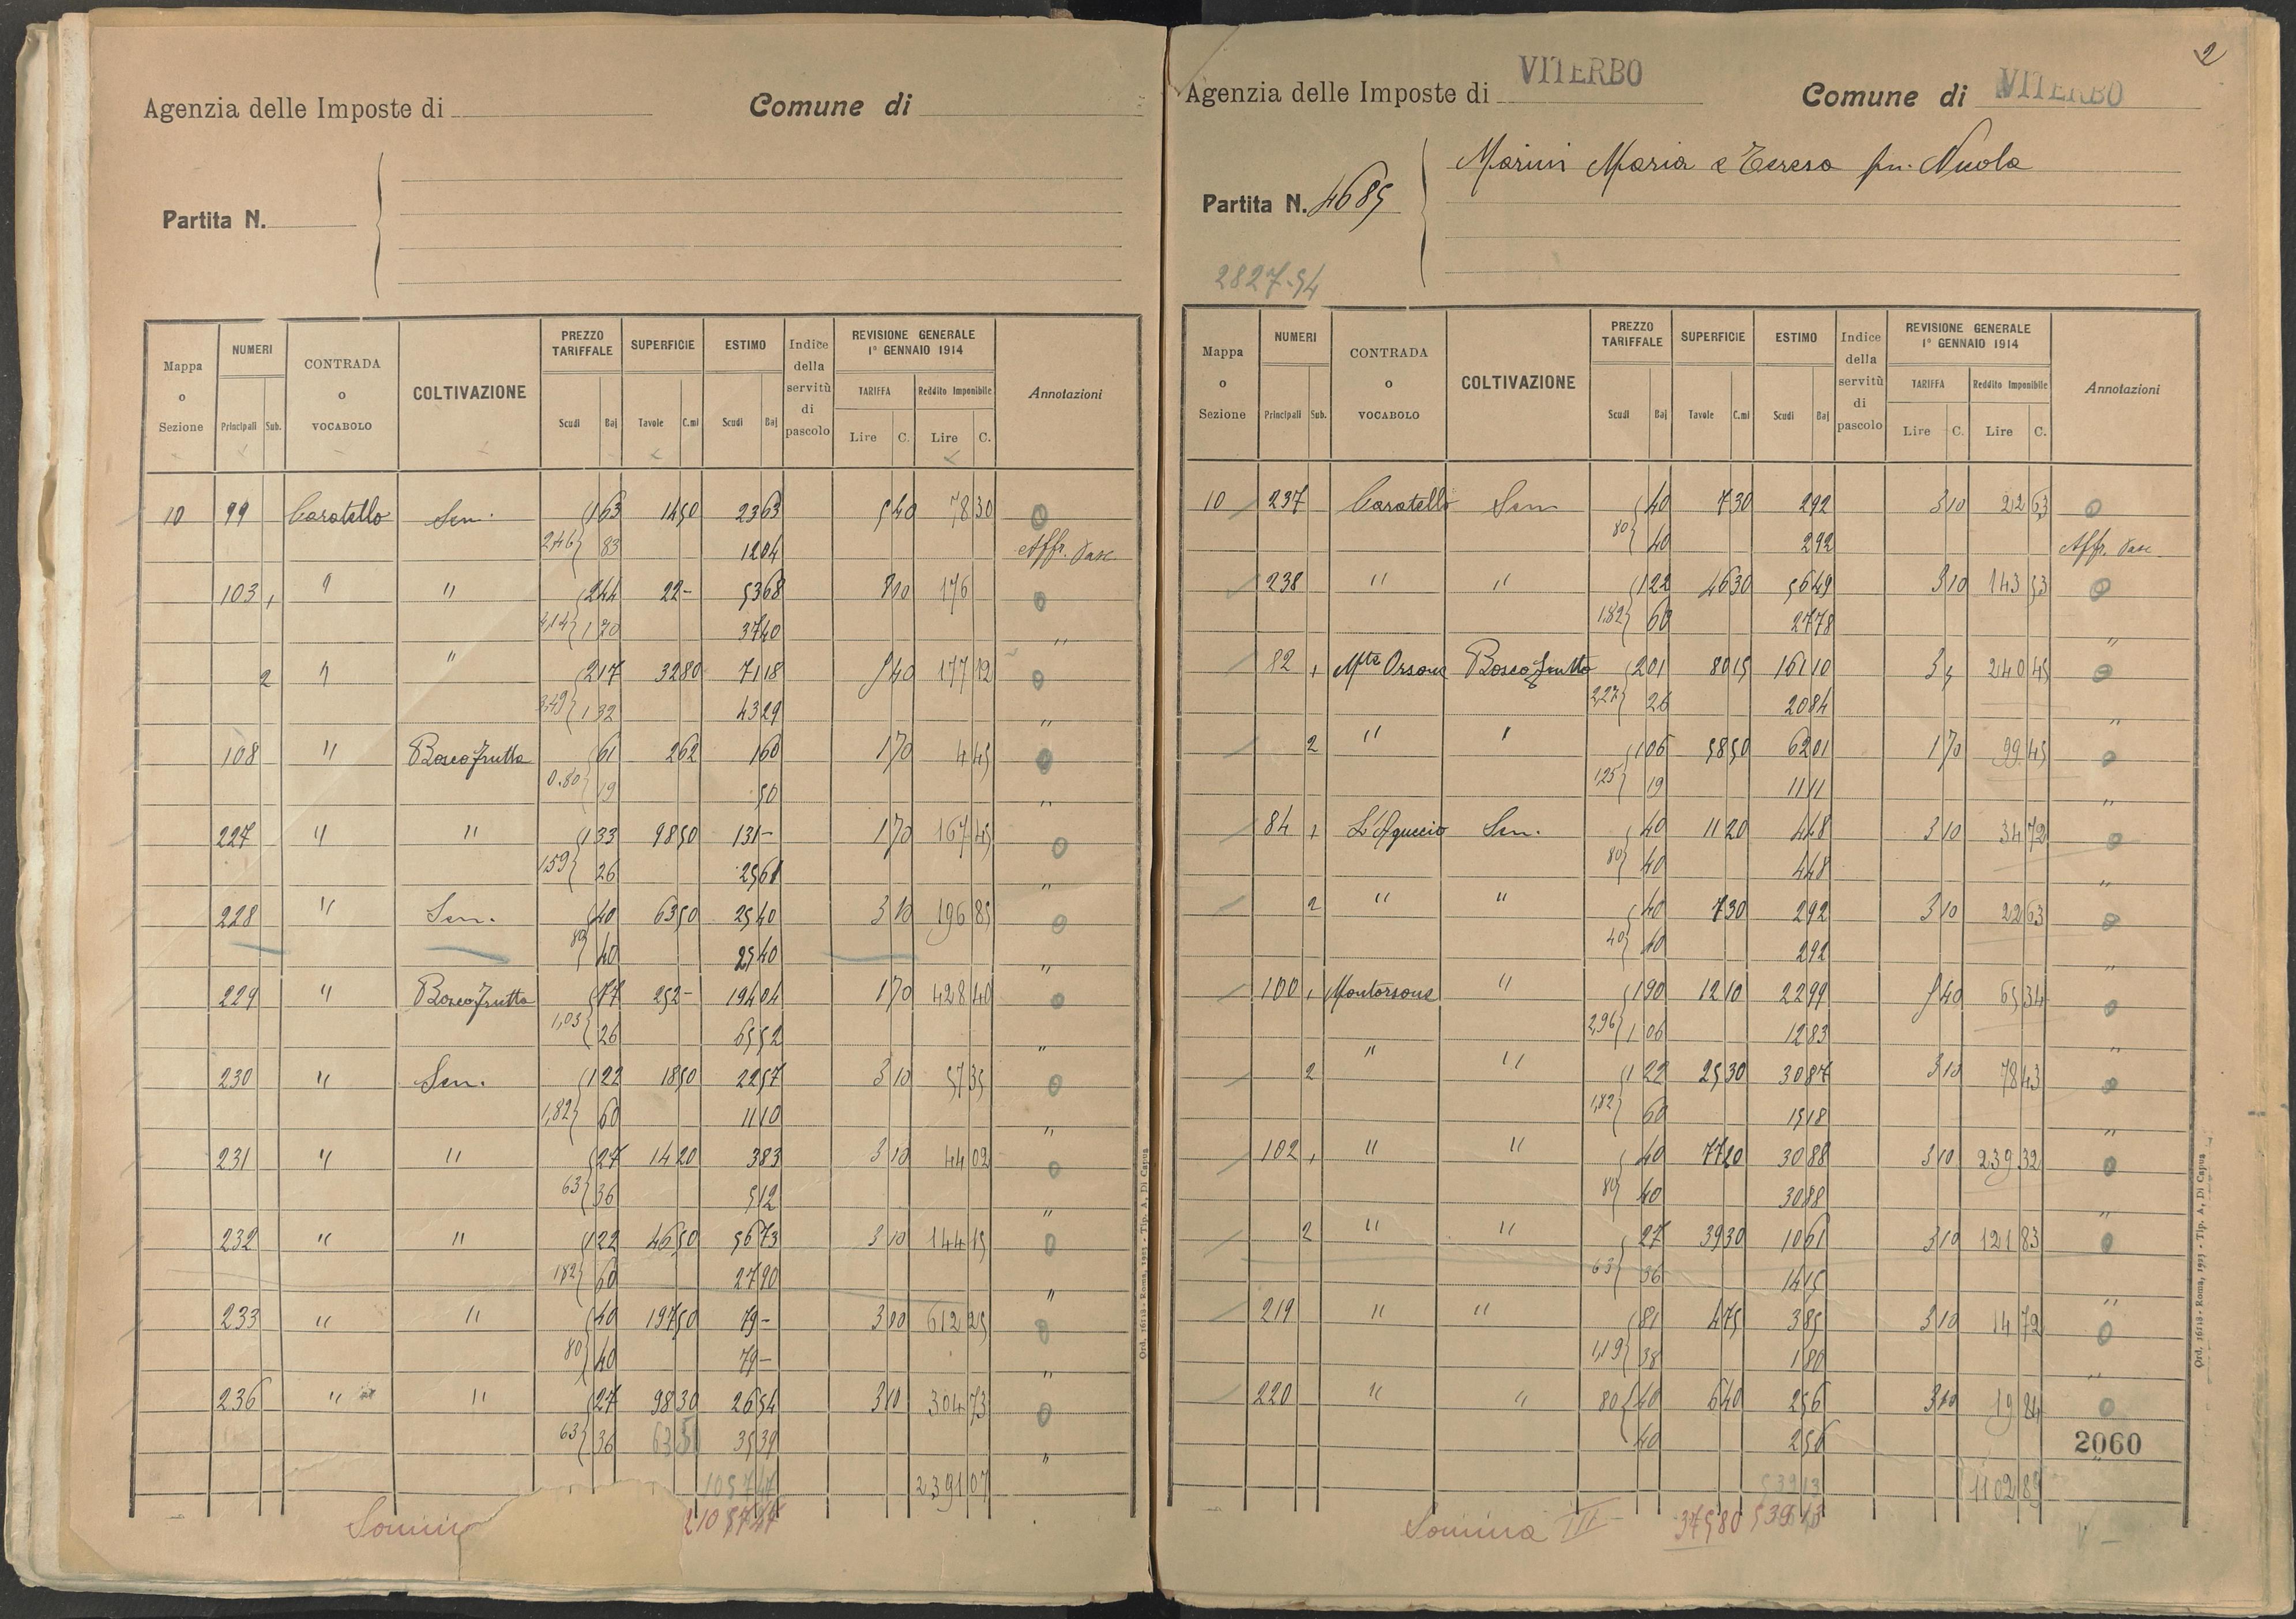 Agenzia delle Imposte di
Comune di
Partita N.
Mappa o Sezione | NUMERI Principali Sub. | CONTRADA o VOCABOLO | COLTIVAZIONE | PREZZO TARIFFALE Scudi Baj | SUPERFICIE Tavole C.mi | ESTIMO Scudi Baj | Indice della servitù di pascolo | REVISIONE GENERALE 1° GENNAIO 1914 TARIFFA Lire C. Reddito Imponibile Lire C. | Annotazioni
10 99 Caratello Sem. 1 63 14 50 23 63 5 40 78 30 0
2,46 83 12 04 Affr. Pasc.
103 1 " " 2 44 22 - 53 68 8 00 176 0
1 70 37 40 "
2 " " 2 17 32 80 71 18 5 40 177 12 0
3,49 1 32 43 29 "
108 " Bosco frutto 61 2 62 1 60 1 70 4 45 0
0.80 19 50 "
227 " " 1 33 98 50 131 - 1 70 167 45 0
1,59 26 25 61 "
228 " Sem. 40 63 50 25 40 3 10 196 85 0
80 40 25 40 "
229 " Bosco frutto 77 252 - 194 04 1 70 428 40 0
1,03 26 65 52 "
230 " Sem. 1 22 18 50 22 57 3 10 57 35 0
1,82 60 11 10 "
231 " " 27 14 20 3 83 3 10 44 02 0
63 36 5 12 "
232 " " 1 22 46 50 56 73 3 10 144 15 0
1,82 60 27 90 "
233 " " 40 197 50 79 - 3 10 612 25 0
80 40 79 - "
236 " " 27 98 30 26 54 3 10 304 73 0
63 36 63 50 35 39 "
1057 47 2391 07
Somm
Ord. 16118 - Roma, 1923 - Tip. A. Di Capua
2
Agenzia delle Imposte di VITERBO
Comune di VITERBO
Marini Maria e Teresa fu Nicola
Partita N. 4685
2827.54
Mappa o Sezione | NUMERI Principali Sub. | CONTRADA o VOCABOLO | COLTIVAZIONE | PREZZO TARIFFALE Scudi Baj | SUPERFICIE Tavole C.mi | ESTIMO Scudi Baj | Indice della servitù di pascolo | REVISIONE GENERALE 1° GENNAIO 1914 TARIFFA Lire C. Reddito Imponibile Lire C. | Annotazioni
10 237 Caratello Sem 40 7 30 2 92 3 10 22 63 0
80 40 2 92 Affr. Pasc.
238 " " 1 22 46 30 56 49 3 10 143 53 0
1,82 60 27 78 "
82 1 Mte Orsone Bosco frutto 2 01 80 15 161 10 3 240 45 0
2,27 26 20 84 "
2 " " 1 06 58 50 62 01 1 70 99 45 0
1,25 19 11 11 "
84 1 L'Aguccio Sem. 40 11 20 4 48 3 10 34 72 0
80 40 4 48 "
2 " " 40 7 30 2 92 3 10 22 63 0
40 40 2 92 "
100 1 Montorsone " 1 90 12 10 22 99 5 40 65 34 0
2,96 1 06 12 83 "
2 " " 1 22 25 30 30 87 3 10 78 43 0
1,82 60 15 18 "
102 1 " " 40 77 20 30 88 3 10 239 32 0
80 40 30 88 "
2 " " 27 39 30 10 61 3 10 121 83 0
63 36 14 15 "
219 " " 81 4 75 3 85 3 10 14 72 0
1,19 38 1 80 "
220 " " 80 40 6 40 2 56 3 10 19 84 0
40 2 56 2060
539 13 1102 89
Somma III 375 80 539 13
Ord. 16118 - Roma, 1923 - Tip. A. Di Capua